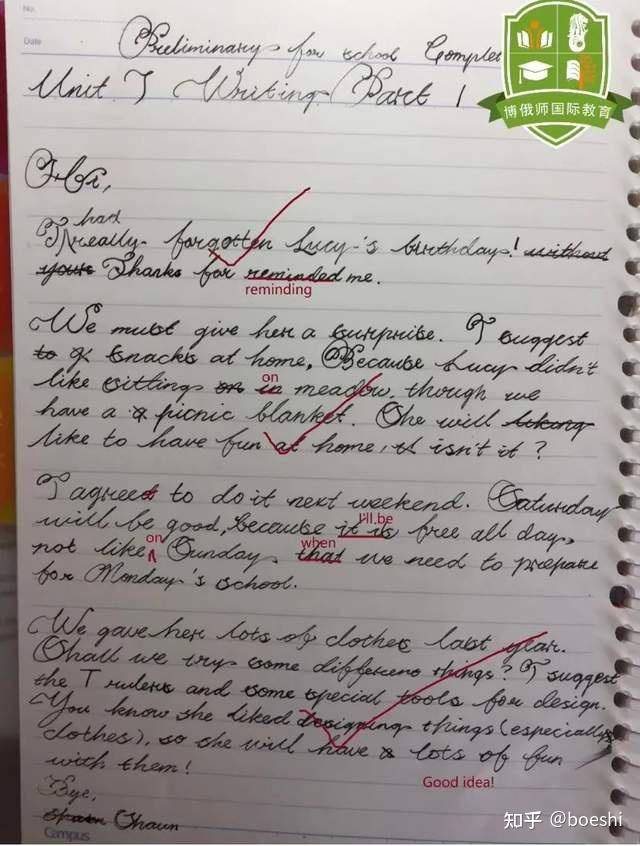 No.
Date
Preliminary for school Complet
Unit 7 Writing Part 1
博俄师国际教育
Hi,
had
I really forgotten Lucy's birthday! without
your Thanks for reminded me.
reminding
We must give her a surprise. I suggest
to snacks at home. Because Lucy didn't
on
like sitting on in meadow, though we
have a picnic blanket. She will liking
like to have fun at home, isn't it?
I agreed to do it next weekend. Saturday
I'll be
will be good, because it is free all day,
on when
not like Sunday that we need to prepare
for Monday's school.
We gave her lots of clothes last year.
Shall we try some different things? I suggest
the T rulers and some special tools for design.
You know she liked designing things (especially
clothes), so she will have a lots of fun
with them!
Good idea!
Bye,
Shaun
Campus
知乎 @boeshi